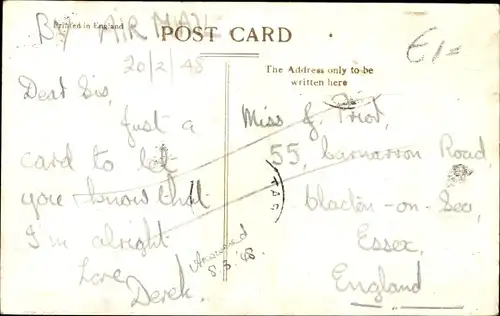 Printed in England
BY AIR MAIL
POST CARD
£1/=
20/2/48
The Address only to be
written here
Dear Sis,
Just a
card to let
you know that
I'm alright
Love
Derek.
Miss J. Prior,
55, Road,
Clacton-on-Sea,
Essex,
England
Answered
8.3.48.